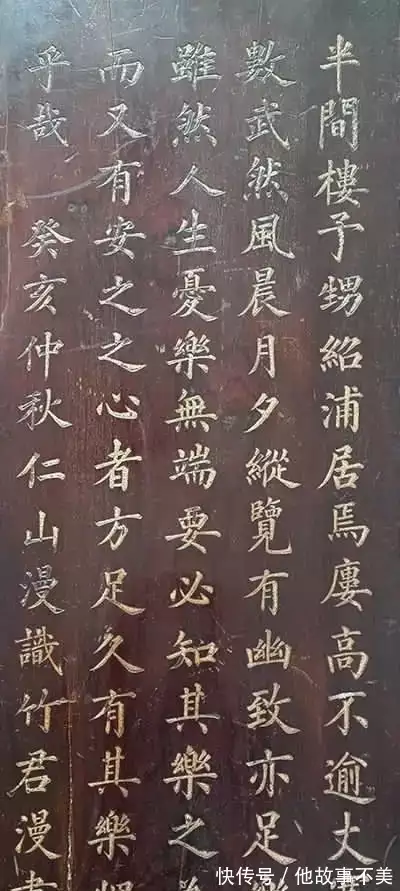 半間樓予甥紹浦居焉廔高不逾丈
數武然風晨月夕縱覽有幽致亦足
雖然人生憂樂無端要必知其樂之
而又有安之之心者方足久有其樂
乎哉 癸亥仲秋仁山漫識竹君漫書
快传号／他故事不美